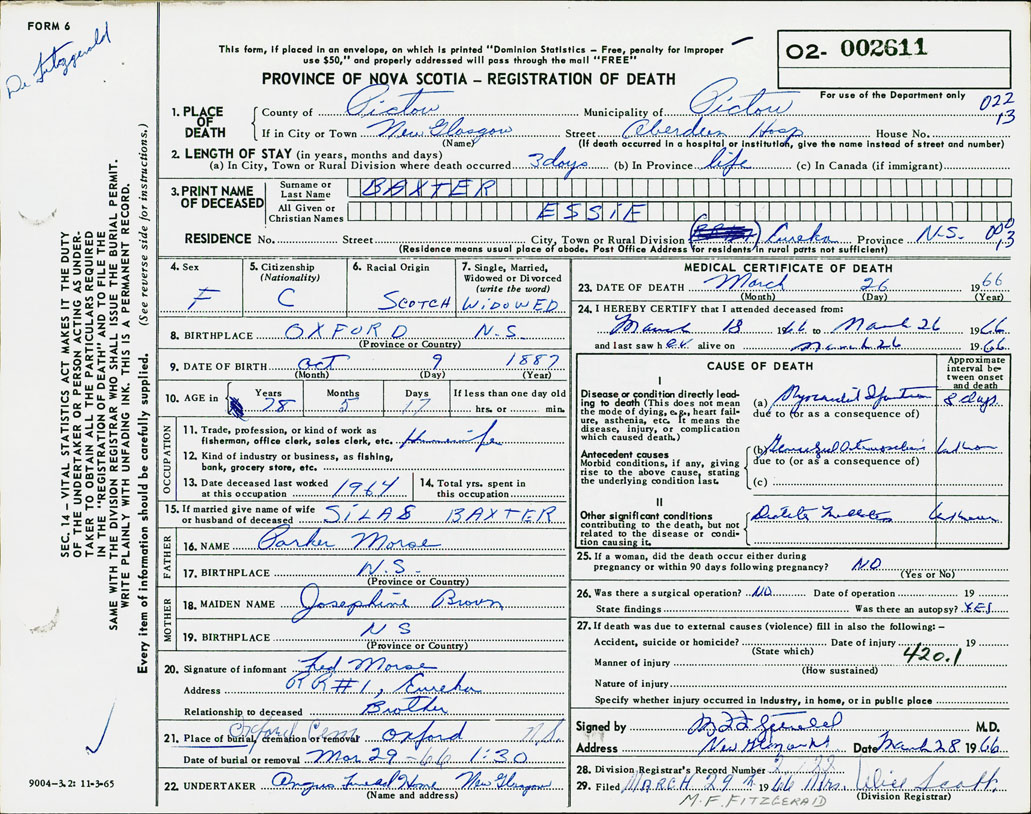 FORM 6
Dr Fitzgerald
This form, if placed in an envelope, on which is printed "Dominion Statistics — Free, penalty for improper
use $50," and properly addressed will pass through the mail "FREE"
02- 002611
For use of the Department only
PROVINCE OF NOVA SCOTIA — REGISTRATION OF DEATH
022
13
1. PLACE OF DEATH
County of Pictou Municipality of Pictou
If in City or Town New Glasgow Street Aberdeen Hosp House No.
(Name) (If death occurred in a hospital or institution, give the name instead of street and number)
2. LENGTH OF STAY (in years, months and days)
(a) In City, Town or Rural Division where death occurred 3 days (b) In Province life (c) In Canada (if immigrant)
3. PRINT NAME OF DECEASED
Surname or Last Name BAXTER
All Given or Christian Names ESSIE
RESIDENCE No. Street City, Town or Rural Division Eureka Province N.S. 000
13
(Residence means usual place of abode. Post Office Address for residents in rural parts not sufficient)
4. Sex F
5. Citizenship (Nationality) C
6. Racial Origin SCOTCH
7. Single, Married, Widowed or Divorced (write the word) WIDOWED
8. BIRTHPLACE OXFORD N.S.
(Province or Country)
9. DATE OF BIRTH Oct 9 1887
(Month) (Day) (Year)
10. AGE in Years 78 Months 5 Days 17 If less than one day old hrs. or min.
OCCUPATION
11. Trade, profession, or kind of work as
fisherman, office clerk, sales clerk, etc.
12. Kind of industry or business, as fishing,
bank, grocery store, etc.
13. Date deceased last worked
at this occupation 1964
14. Total yrs. spent in
this occupation
15. If married give name of wife
or husband of deceased SILAS BAXTER
FATHER
16. NAME Parker Morse
17. BIRTHPLACE N.S.
(Province or Country)
MOTHER
18. MAIDEN NAME Josephine Brown
19. BIRTHPLACE N S
(Province or Country)
20. Signature of informant Fred Morse
Address RR#1, Eureka
Relationship to deceased Brother
21. Place of burial, cremation or removal Oxford Cem Oxford N.S.
Date of burial or removal Mar 29 - 66 1:30
22. UNDERTAKER Angus Funeral Home New Glasgow
(Name and address)
MEDICAL CERTIFICATE OF DEATH
23. DATE OF DEATH March 26 1966
(Month) (Day) (Year)
24. I HEREBY CERTIFY that I attended deceased from:
March 18 1966 to March 26 1966
and last saw her alive on March 26 1966
CAUSE OF DEATH
Approximate interval between onset and death
I
Disease or condition directly leading to death (This does not mean
the mode of dying, e.g., heart failure, asthenia, etc. It means the
disease, injury, or complication
which caused death.)
(a) Myocardial Infarction 8 days
due to (or as a consequence of)
Antecedent causes
Morbid conditions, if any, giving
rise to the above cause, stating
the underlying condition last.
(b)
due to (or as a consequence of)
(c)
II
Other significant conditions
contributing to the death, but not
related to the disease or condition causing it.
25. If a woman, did the death occur either during
pregnancy or within 90 days following pregnancy? NO
(Yes or No)
26. Was there a surgical operation? NO Date of operation 19
State findings Was there an autopsy? YES
27. If death was due to external causes (violence) fill in also the following:—
Accident, suicide or homicide? Date of injury 19
(State which)
420.1
Manner of injury
(How sustained)
Nature of injury
Specify whether injury occurred in industry, in home, or in public place
Signed by M.D.
Address Date March 28 1966
28. Division Registrar's Record Number
29. Filed MARCH 29 1966 Mrs. Scott
(Division Registrar)
M.F. FITZGERALD
SEC. 14 — VITAL STATISTICS ACT MAKES IT THE DUTY
OF THE UNDERTAKER OR PERSON ACTING AS UNDER-
TAKER TO OBTAIN ALL THE PARTICULARS REQUIRED
IN THE "REGISTRATION OF DEATH" AND TO FILE THE
SAME WITH THE DIVISION REGISTRAR WHO SHALL ISSUE THE BURIAL PERMIT.
WRITE PLAINLY WITH UNFADING INK. THIS IS A PERMANENT RECORD.
Every item of information should be carefully supplied. (See reverse side for instructions.)
9004-3.2: 11-3-65